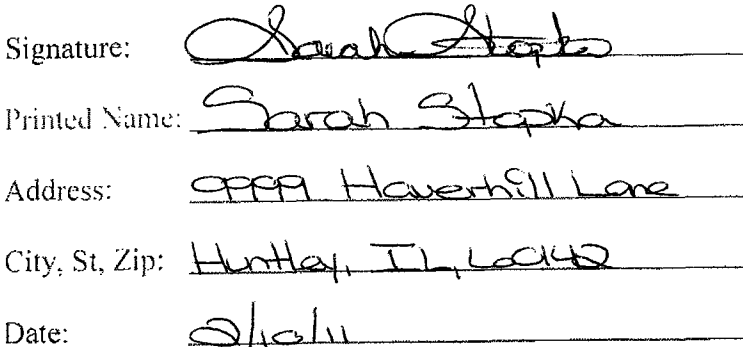 Signature: Sarah Stopka
Printed Name: Sarah Stopka
Address: 9999 Haverhill Lane
City, St, Zip: Huntley, IL, 60142
Date: 2/10/11